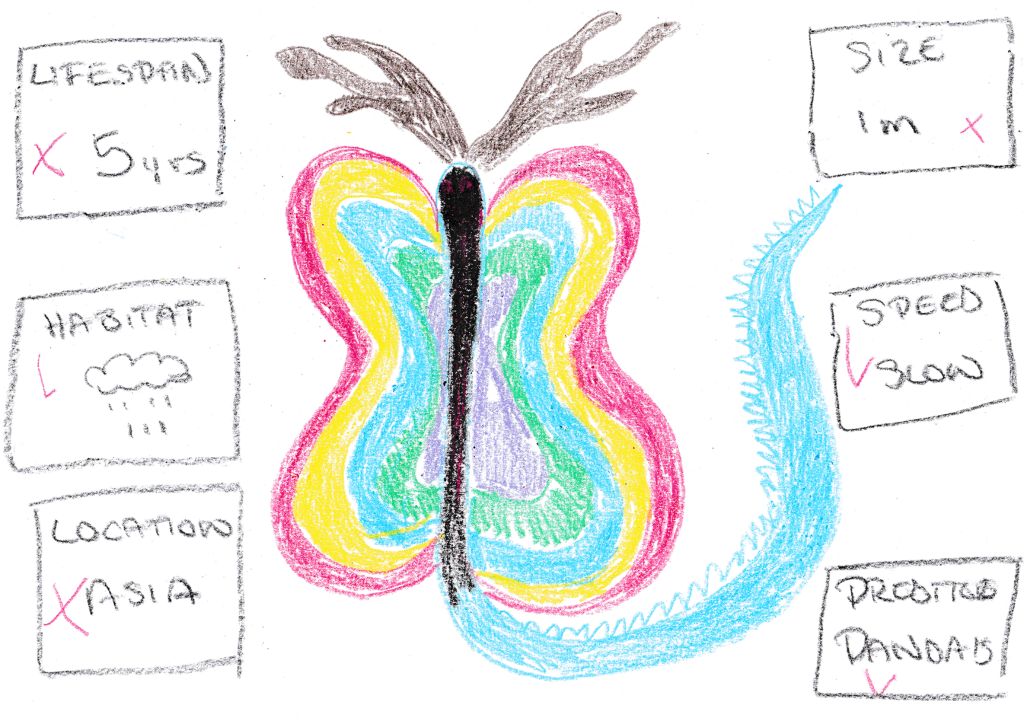 LIFESPAN
X 5yrs
HABITAT
LOCATION
X ASIA
SIZE
1m x
SPEED
SLOW
PANDAS